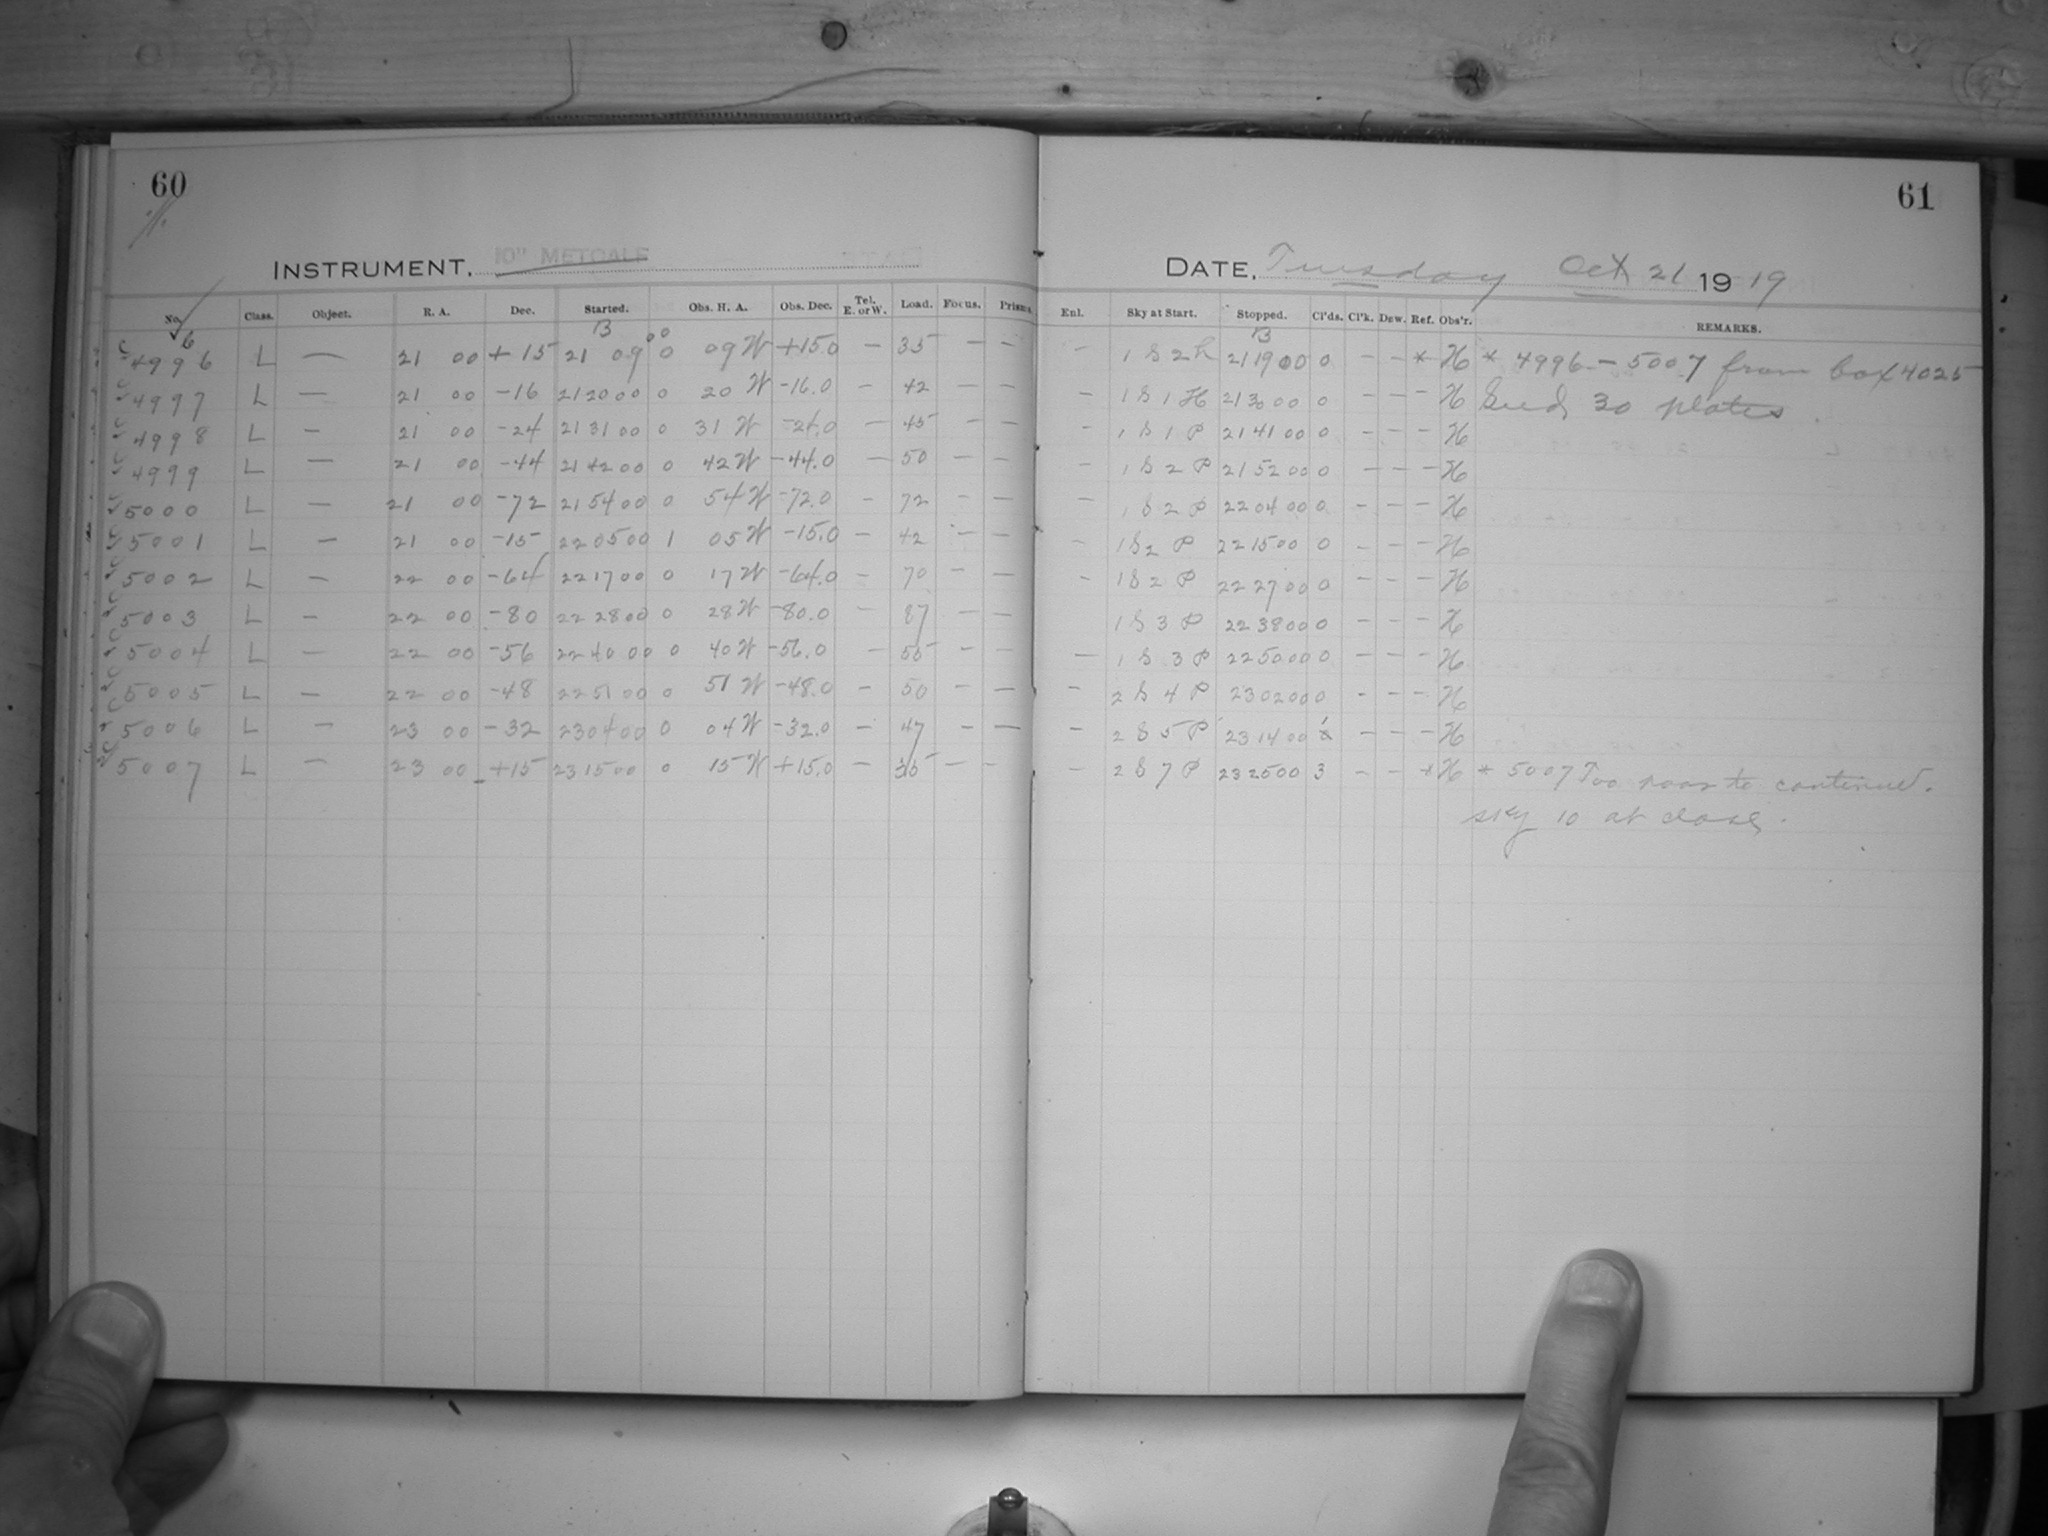 60
61
INSTRUMENT. 10" METCALF
DATE. Tuesday Oct 21 1919
No. Class. Object. R. A. Dec. Started. Obs. H. A. Obs. Dec. Tel. E. or W. Load. Focus. Prisms. Enl. Sky at Start. Stopped. Cl'ds. Cl'k. Dew. Ref. Obs'r. REMARKS.
4996 L — 21 00 +15 21 09 00 0 09 W +15.0 — 35 — — — 1 S 2 h 21 19 00 0 — — * H * 4996 — 5007 from box 4025
4997 L — 21 00 -16 21 20 00 0 20 W -16.0 — 42 — — — 1 S 1 H 21 30 00 0 — — — H Seed 30 plates
4998 L — 21 00 -24 21 31 00 0 31 W -24.0 — 45 — — — 1 S 1 P 21 41 00 0 — — — H
4999 L — 21 00 -44 21 42 00 0 42 W -44.0 — 50 — — — 1 S 2 P 21 52 00 0 — — — H
5000 L — 21 00 -72 21 54 00 0 54 W -72.0 — 72 — — — 1 S 2 P 22 04 00 0 — — — H
5001 L — 21 00 -15 22 05 00 1 05 W -15.0 — 42 — — — 1 S 2 P 22 15 00 0 — — — H
5002 L — 22 00 -64 22 17 00 0 17 W -64.0 — 70 — — — 1 S 2 P 22 27 00 0 — — — H
5003 L — 22 00 -80 22 28 00 0 28 W -80.0 — 87 — — 1 S 3 P 22 38 00 0 — — — H
5004 L — 22 00 -56 22 40 00 0 40 W -56.0 — 55 — — — 1 S 3 P 22 50 00 0 — — — H
5005 L — 22 00 -48 22 51 00 0 51 W -48.0 — 50 — — — 2 S 4 P 23 02 00 0 — — — H
5006 L — 23 00 -32 23 04 00 0 04 W -32.0 — 47 — — — 2 S 5 P 23 14 00 — — — H
5007 L — 23 00 +15 23 15 00 0 15 W +15.0 — 35 — — — 2 S 7 P 23 25 00 3 — — * H * 5007 Too poor to continue.
sky 10 at close.